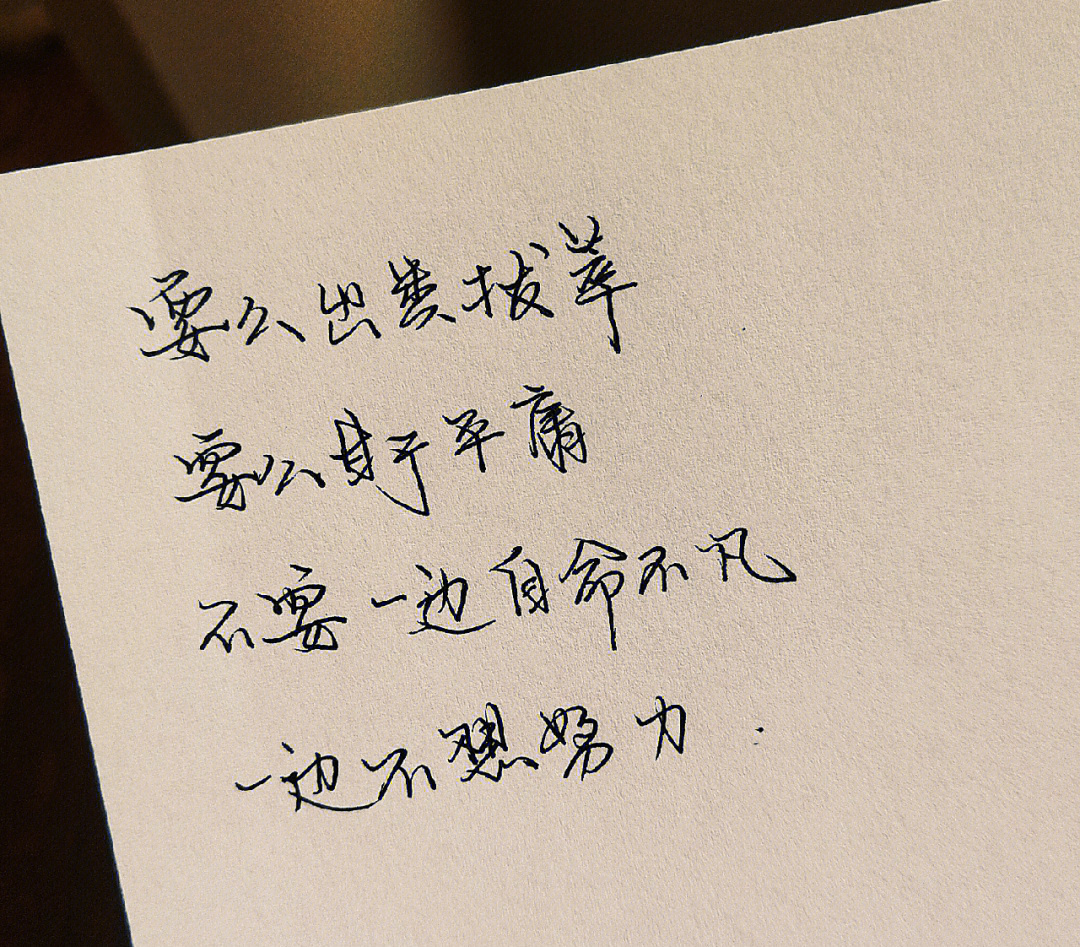 要么出类拔萃
要么甘于平庸
不要一边自命不凡
一边不想努力.